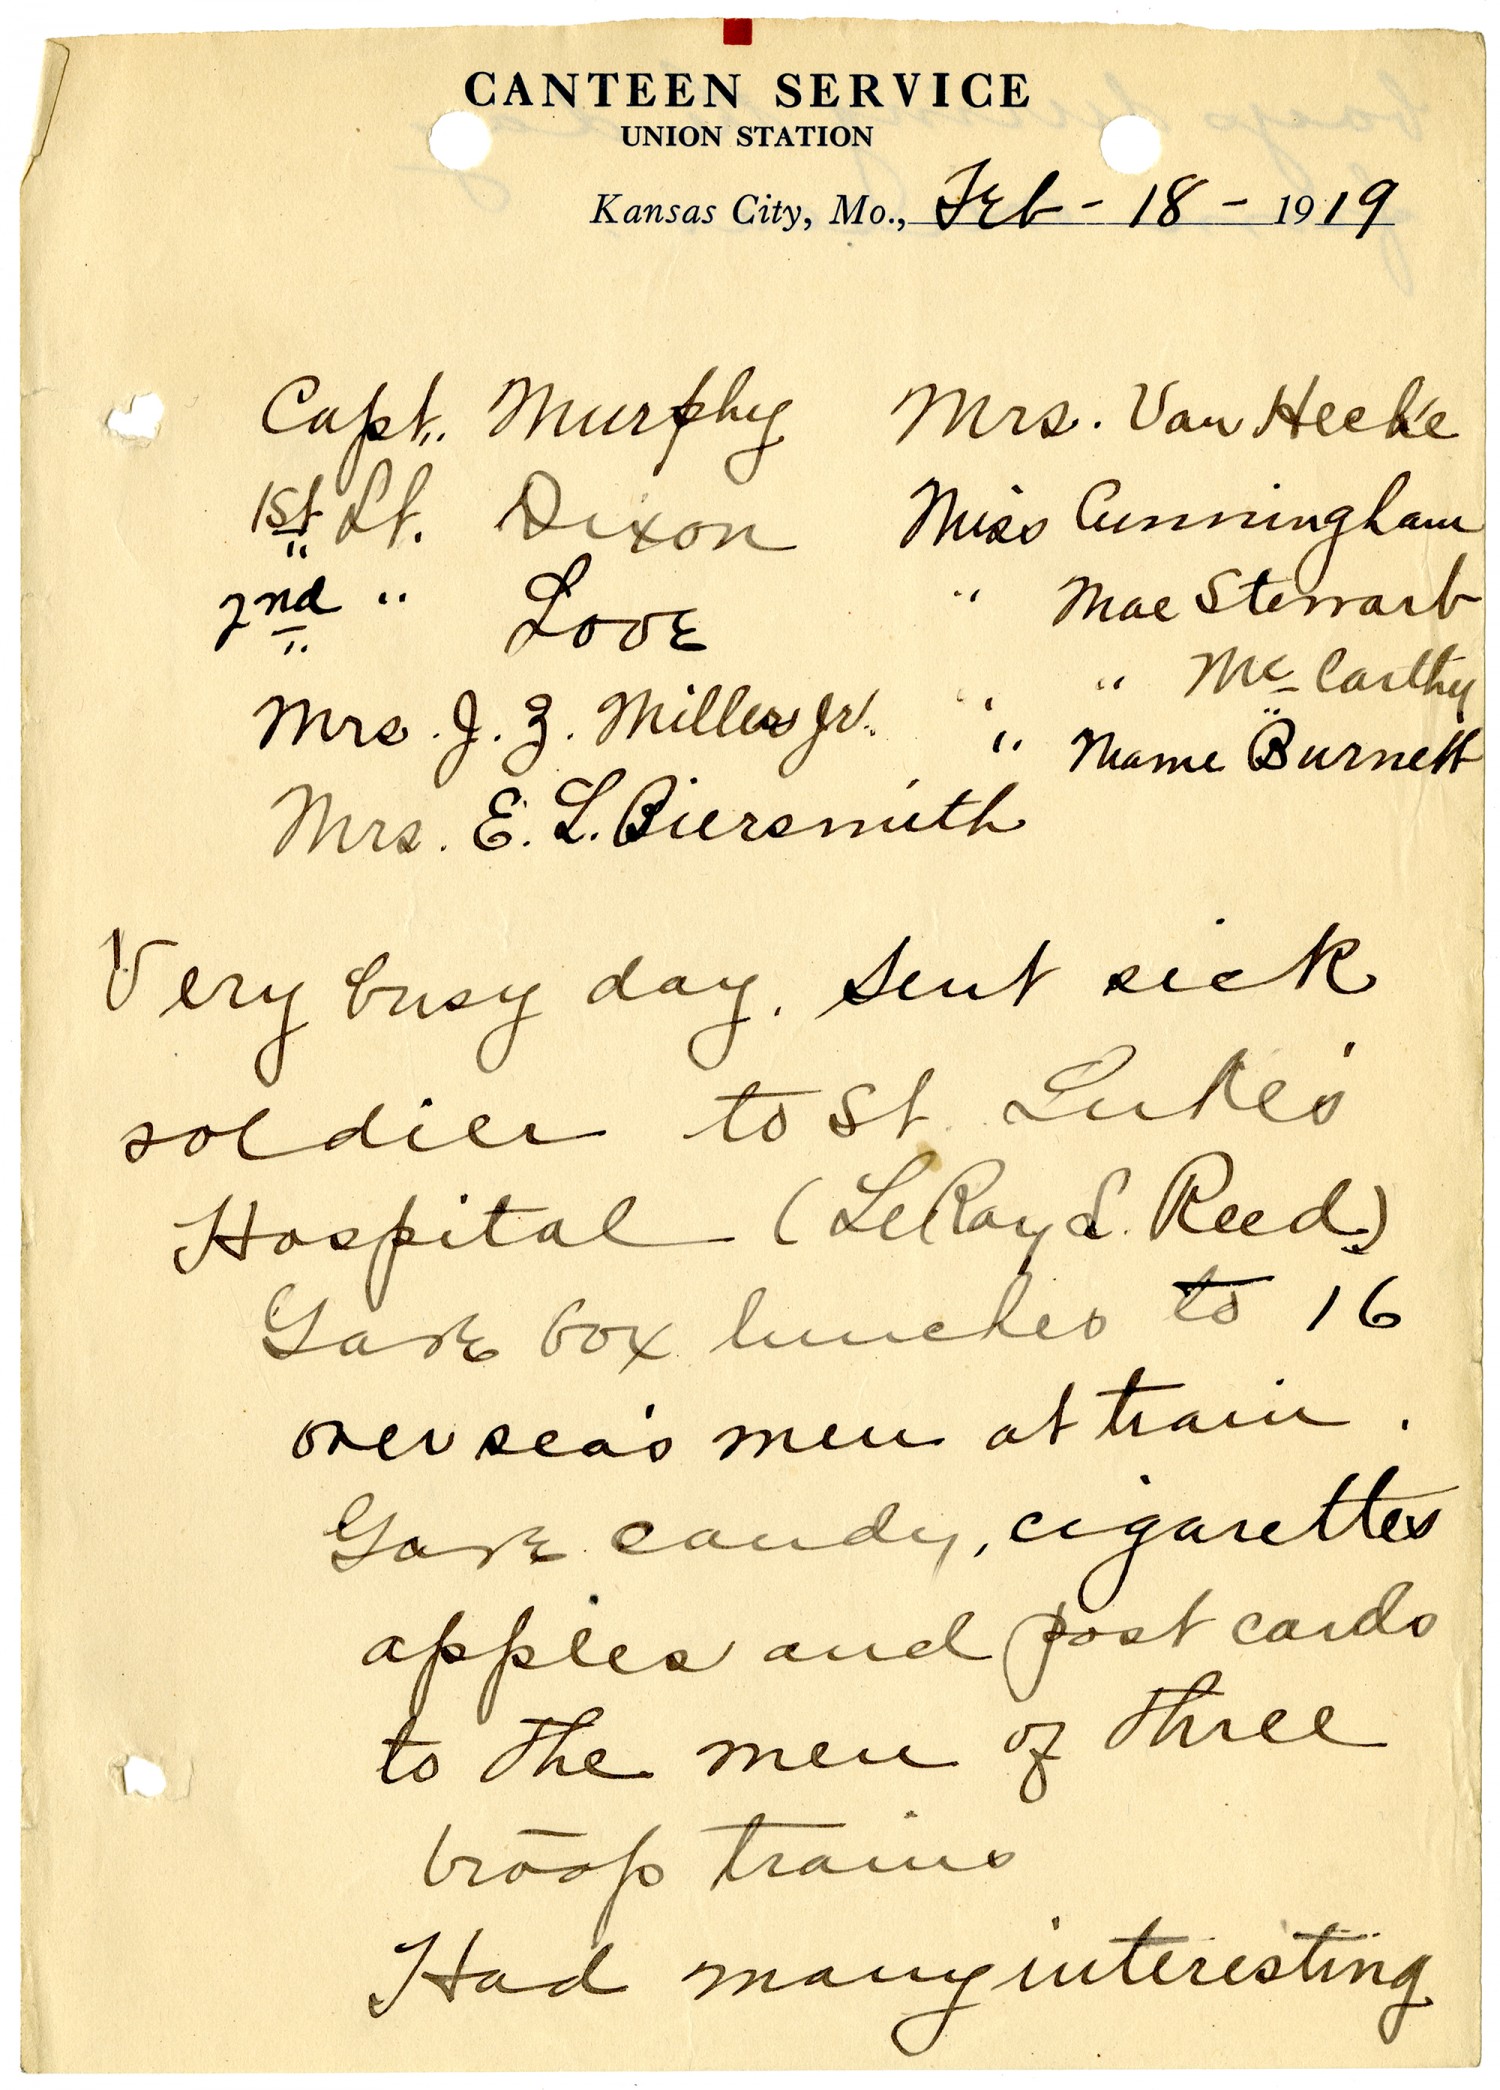 CANTEEN SERVICE
UNION STATION
Kansas City, Mo., Feb - 18 - 1919
Capt. Murphy
1st Lt. Dixon
2nd " Love
Mrs. J. Z. Miller Jr.
Mrs. E. L. Biersmith
Mrs. Van Hecke
Miss Cunningham
" Mae Stewart
" Mc Carthy
" Mame Burnett
Very busy day. Sent sick
soldier to St. Luke's
Hospital (LeRoy S. Reed)
Gave box lunches to 16
oversea's men at train.
Gave candy, cigarettes
apples and post cards
to the men of three
troop trains
Had many interesting